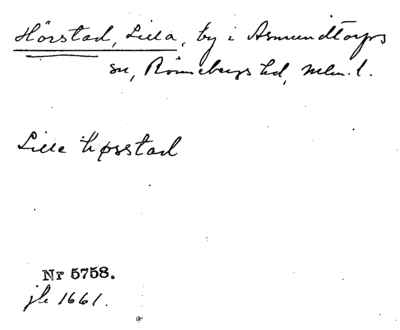 Hörstad, Lilla, by i Asmundtorps
sn, Rönnebergs hd, Mlm. l.
Lille Hørstad
Nr 5758.
jb 1661.